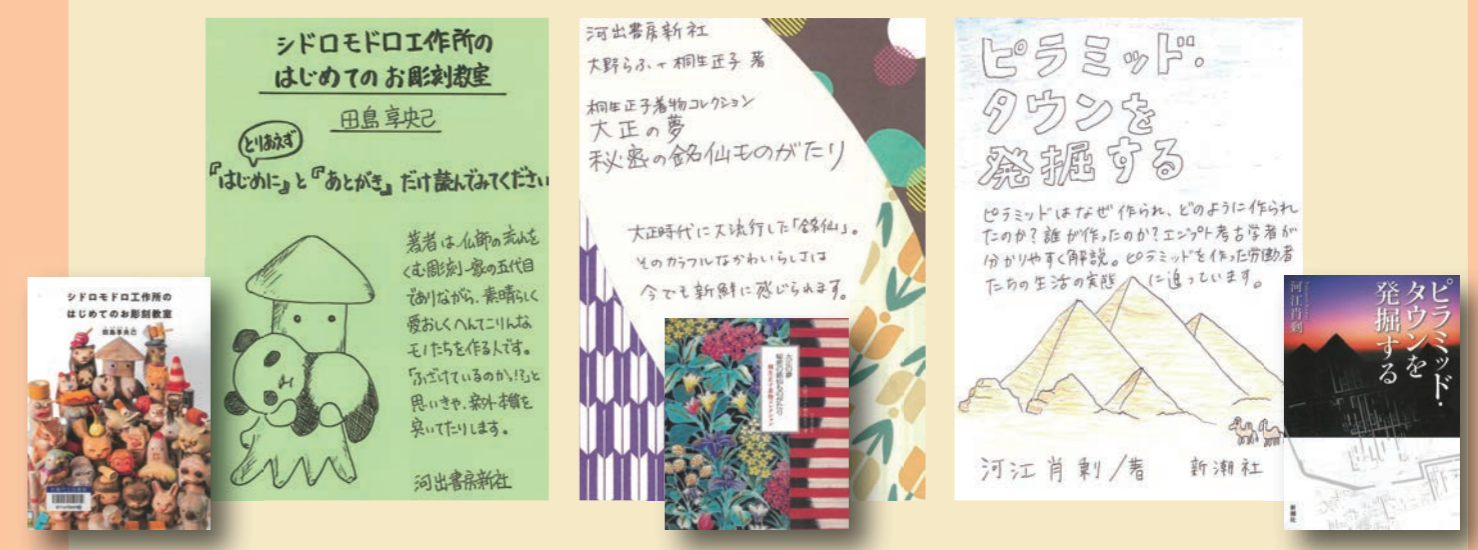 シドロモドロ工作所の
はじめてのお彫刻教室
田島享央己
とりあえず
『はじめに』と『あとがき』だけ読んでみてください
著者は仏師の流れを
くむ彫刻一家の五代目
でありながら、素晴らしく
愛おしくへんてこりんな
モノたちを作る人です。
「ふざけているのか!?」と
思いきや、案外本質を
突いてたりします。
河出書房新社
シドロモドロ工作所の
はじめてのお彫刻教室
田島享央己
河出書房新社
大野らふ+桐生正子 著
桐生正子着物コレクション
大正の夢
秘密の銘仙ものがたり
大正時代に大流行した「銘仙」。
そのカラフルなかわいらしさは
今でも新鮮に感じられます。
大正の夢
秘密の銘仙ものがたり
桐生正子着物コレクション
ピラミッド・
タウンを
発掘する
ピラミッドはなぜ作られ、どのように作られ
たのか?誰が作ったのか?エジプト考古学者が
分かりやすく解説。ピラミッドを作った労働者
たちの生活の実態に迫っています。
河江肖剰/著 新潮社
ピラミッド・
タウンを
発掘する
河江肖剰
新潮社